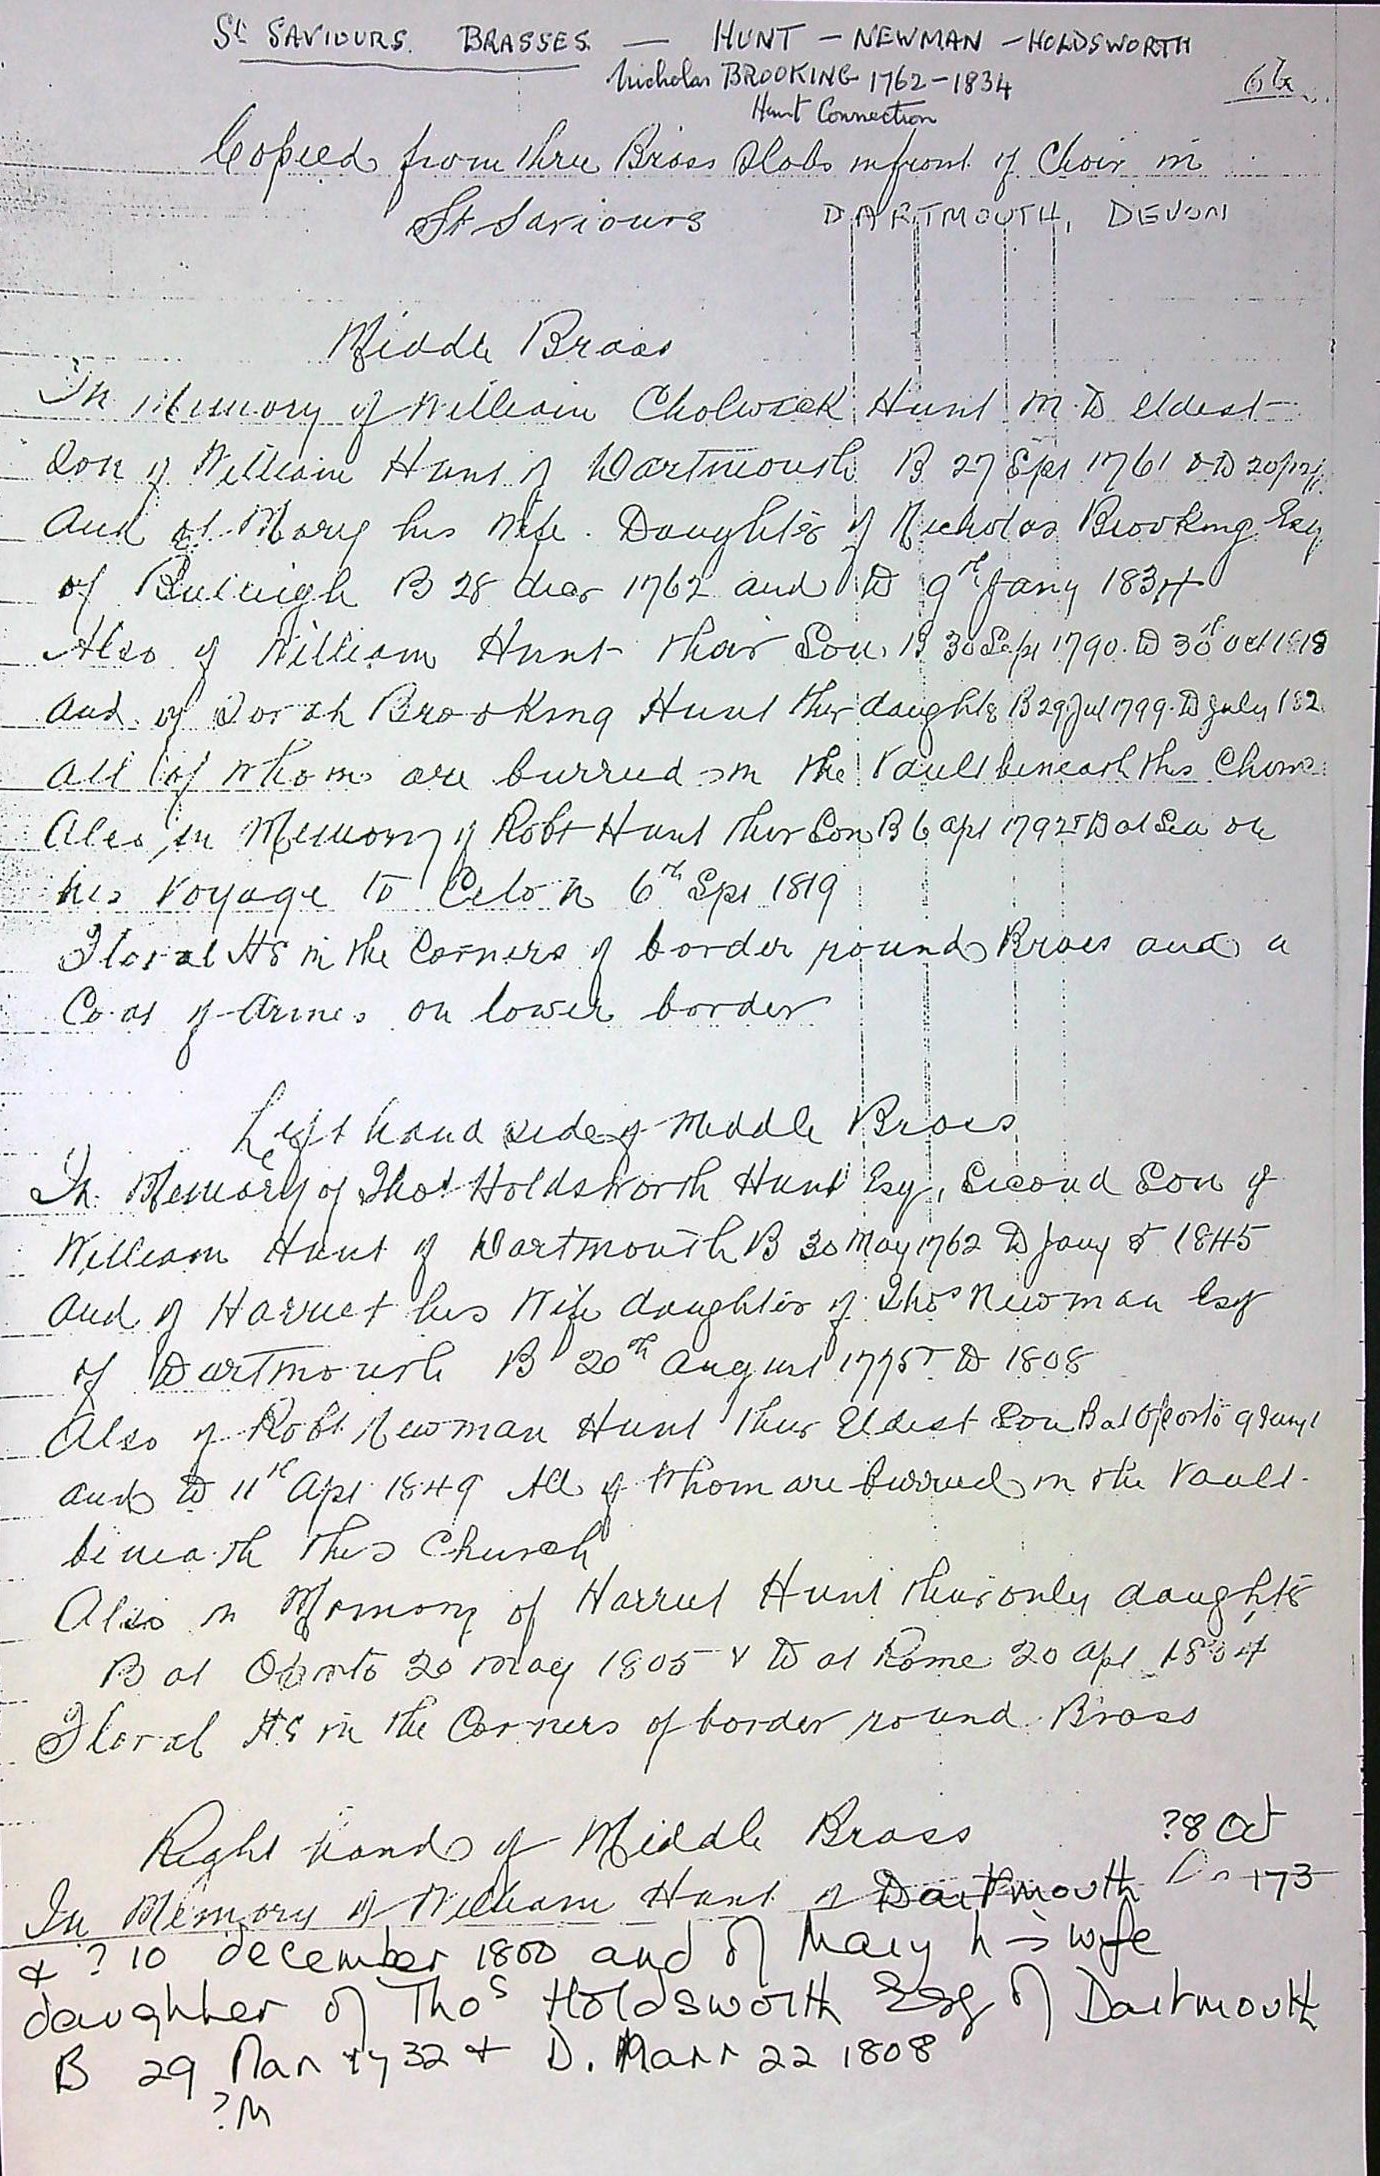 St SAVIOURS BRASSES — HUNT - NEWMAN - HOLDSWORTH
Nicholas BROOKING 1762-1834
Hunt Connection
Copied from three Brass Slabs infront of Choir in
St Saviours DARTMOUTH, DEVON
Middle Brass
In Memory of William Cholwick Hunt M.D eldest
Son of William Hunt of Dartmouth B 27 Sept 1761 & D
And of Mary his Wife. Daughter of Nicholas Brooking Esq
of B 28 1762 and D 9th Jany 1834
Also of William Hunt their Son B 30 Sept 1790. D 30th Oct 1818
and of Sarah Brooking Hunt their daughter B 29 Jul 1799. D July 182
all of whom are burried in the Vault beneath this
Also in Memory of Robt Hunt their Son B 6 apl 1792 D at Sea on
his Voyage to Celon 6th Spt 1819
Floral HS in the Corners of border round Brass and a
Coat of Armes on lower border
Left hand side of Middle Brass
In Memory of Thos Holdsworth Hunt Esq, Second Son of
William Hunt of Dartmouth B 30 May 1762 D Jany 5 1845
and of Harriet his Wife daughter of Thos Newman Esq
of Dartmouth B 20th august 1775 D 1808
Also of Robt Newman Hunt their Eldest Son B at Oporto 9
and D 11th Apl 1849 All of Whom are burried in the Vault
beneath this Church
Also in Memory of Harriet Hunt their only daughter
B at Oporto 20 May 1805 & D at Rome 20 apl 1834
Floral HS in the Corners of border round Brass
Right hand of Middle Brass ?8 Oct
In Memory of William Hunt of Dartmouth 173
& ? 10 december 1800 and of Mary his wife
daughter of Thos Holdsworth Esq of Dartmouth
B 29 Mar 1732 & D. Marr 22 1808
?M